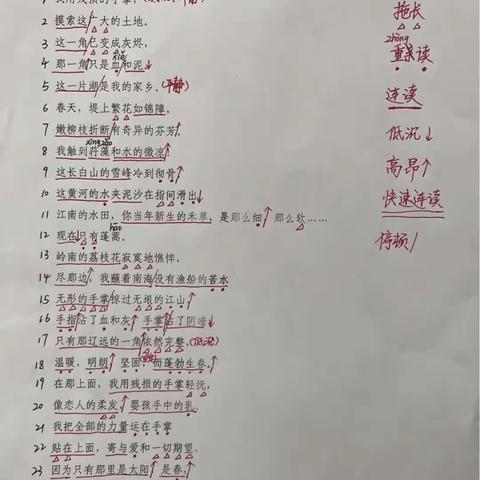 1 我用残损的手掌,
2 摸索这广大的土地。
3 这一角已变成灰烬,
xiě
4 那一角只是血和泥;
5 这一片湖是我的家乡。(平静)
6 春天,堤上繁花如锦障,
7 嫩柳枝折断有奇异的芬芳,
xìng zǎo
8 我触到荇藻和水的微凉;
9 这长白山的雪峰冷到彻骨,
10 这黄河的水夹泥沙在指间滑出;
11 江南的水田,你当年新生的禾草,是那么细,那么软……
hāo
12 现在只有蓬蒿。
13 岭南的荔枝花寂寞地憔悴,
14 尽那边,我蘸着南海没有渔船的苦水
15 无形的手掌掠过无垠的江山,
16 手指沾了血和灰,手掌沾了阴暗,
17 只有那辽远的一角依然完整,(低沉)
18 温暖,明朗,坚固而蓬勃生春。
19 在那上面,我用残损的手掌轻抚,
20 像恋人的柔发,婴孩手中的乳。
21 我把全部的力量运在手掌
22 贴在上面,寄与爱和一切期望,
23 因为只有那里是太阳,是春,
拖长
zhòng
重读
连读
低沉↓
高昂↑
快速连读
停顿/